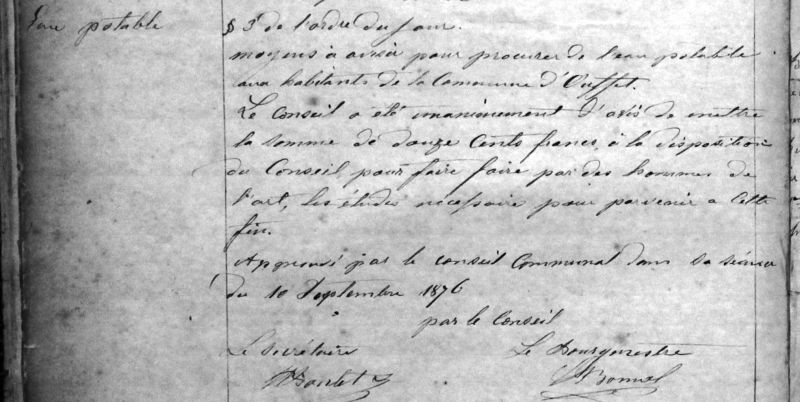 Eau potable
§ 3 de l'ordre du jour.
moyens à avisér pour procurer de l'eau potable
aux habitants de la Commune d'Ouffet.
Le Conseil a été unaniment d'avis de mettre
la somme de douze Cents francs, à la disposition
du Conseil pour faire faire par des hommes de
l'art, les études nécessaire pour parvenir a cette
fin.
Approuvé par le conseil Communal dans sa séance
du 10 Septembre 1876
par le Conseil
Le Secrétaire
Le Bourgmestre